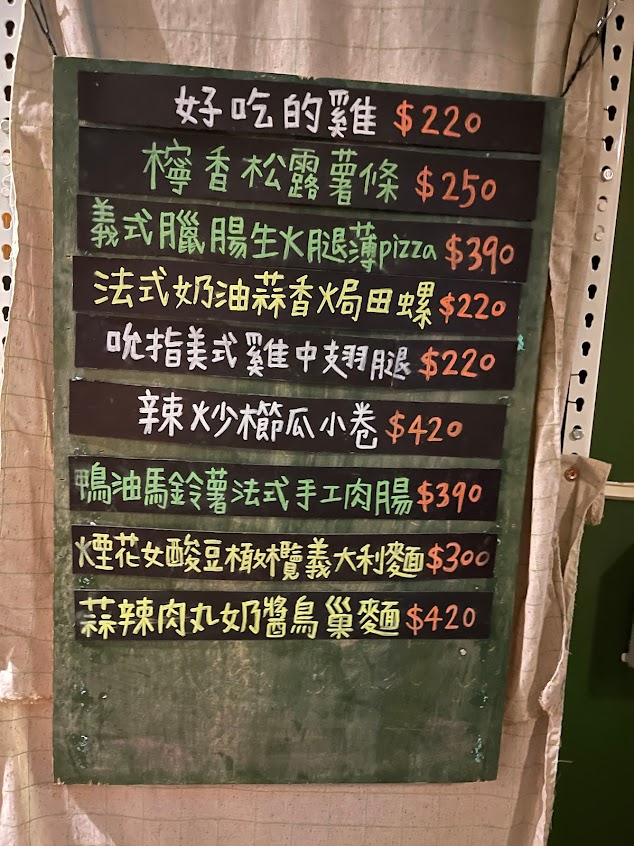 好吃的雞 $220
檸香松露薯條 $250
義式臘腸生火腿薄pizza $390
法式奶油蒜香焗田螺 $220
吮指美式雞中翅腿 $220
辣炒櫛瓜小卷 $420
鴨油馬鈴薯法式手工肉腸 $390
煙花女酸豆橄欖義大利麵 $300
蒜辣肉丸奶醬鳥巢麵 $420